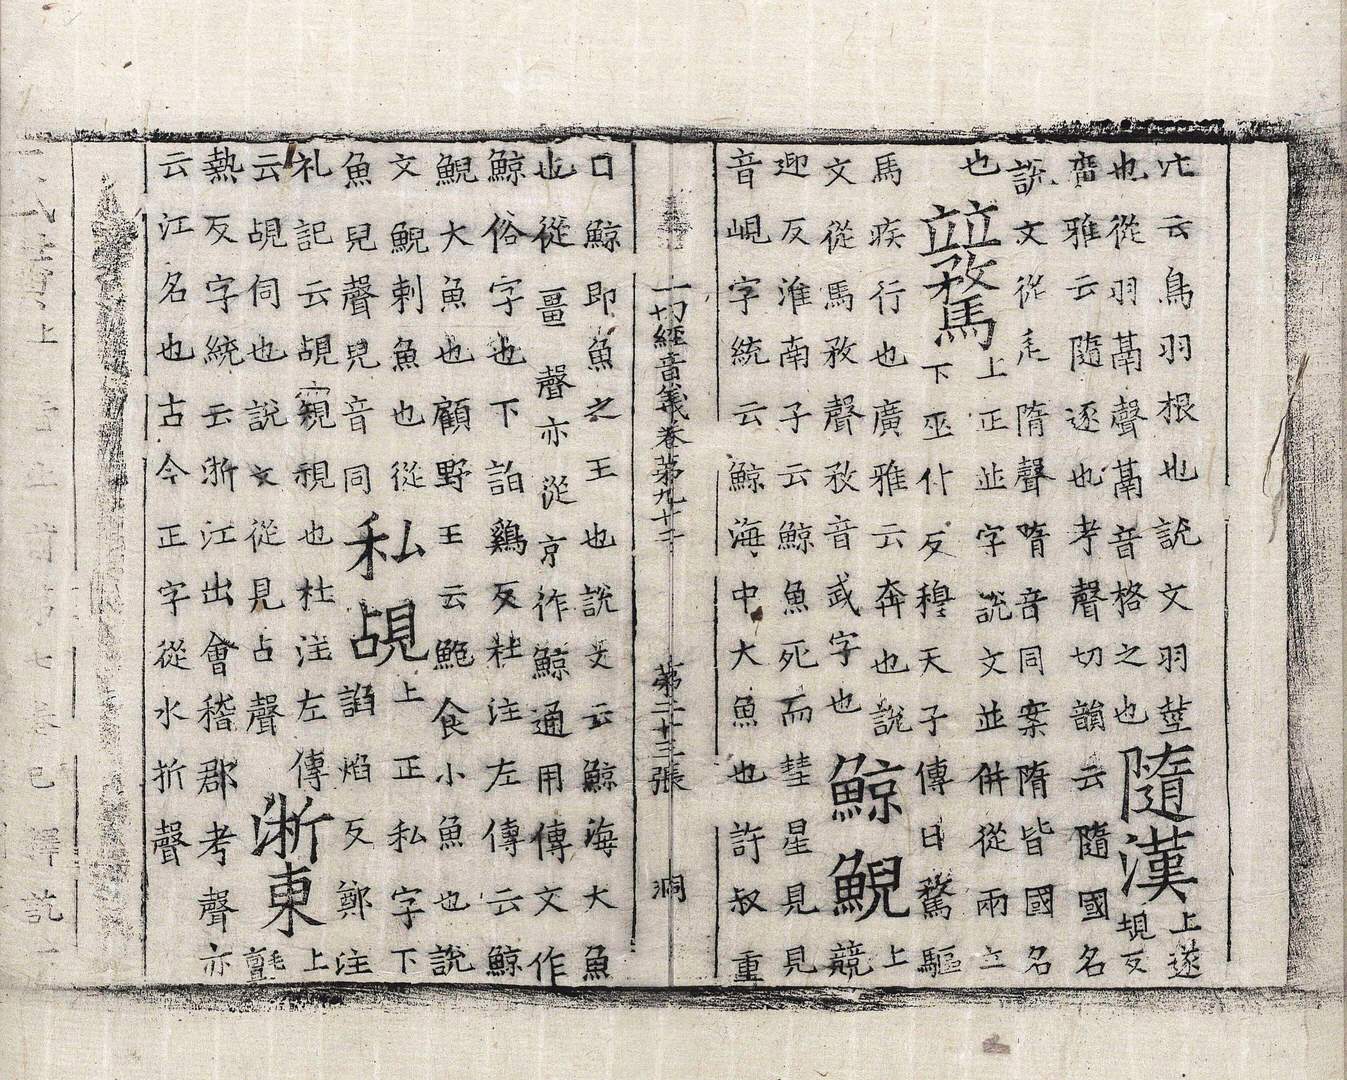 㲉云鳥羽根也說文羽莖
也從羽鬲聲鬲音格之也隨漢上遂
埧反
爾雅云隨逐也考聲切韻云隨國名
說文從辵隋聲隋音同案隋皆國名
也竝騖上正竝字說文並併從兩立
下巫付反穆天子傳曰騖驅
馬疾行也廣雅云奔也說
文從馬敄聲敄音武字也鯨鯢上競
迎反淮南子云鯨魚死而彗星見見
音峴字統云鯨海中大魚也許叔重
一切經音義卷第九十三 第二十三張 洞
口鯨即魚之王也說文云鯨海大魚
也從畺聲亦從京作鯨通用傳文作
鯨俗字也下詣鷄反杜注左傳云鯨
鯢大魚也顧野王云鮑食小魚也說
文鯢刺魚也從
魚兒聲兒音同私覘上正私字下
諂焰反鄭注
礼記云覘窺視也杜注左傳
云覘伺也說文從見占聲浙東上
氈
熱反字統云浙江出會稽郡考聲亦
云江名也古今正字從水折聲